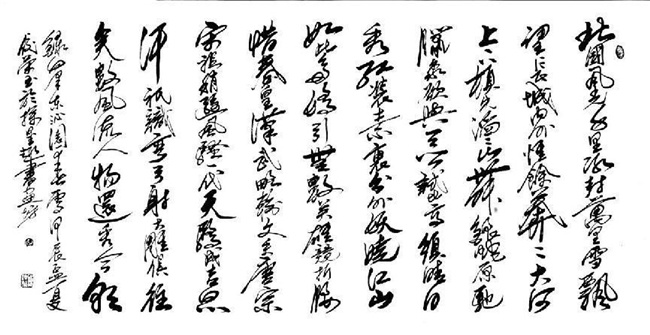 北國風光千里冰封萬里雪飄
望長城內外惟餘莽莽大河
上下頓失滔滔山舞銀蛇原馳
蠟象欲與天公試高須晴日
看紅裝素裹分外妖嬈江山
如此多嬌引無數英雄競折腰
惜秦皇漢武略輸文采唐宗
宋祖稍遜風騷一代天驕成吉思
汗祇識彎弓射大雕俱往
矣數風流人物還看今朝
錄毛澤東沁園春雪甲辰孟夏